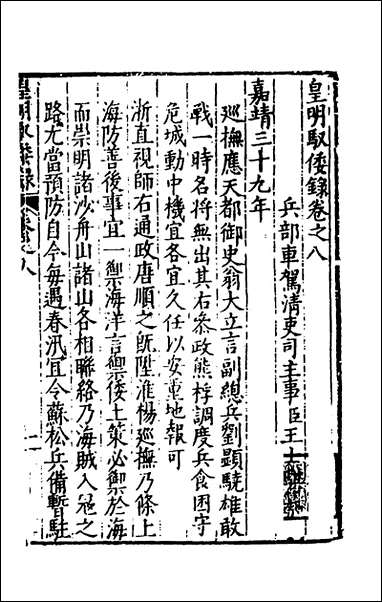 皇明馭倭錄卷之八
兵部車駕清吏司主事臣王士騏
嘉靖三十九年
巡撫應天都御史翁大立言副總兵劉顯驍雄敢
戰一時名將無出其右叅政熊桴調度兵食困守
危城動中機宜各宜久任以安重地報可
浙直視師右通政唐順之旣陞淮楊巡撫乃條上
海防善後事宜一禦海洋言禦倭上策必禦於海
而崇明諸沙舟山諸山各相聯絡乃海賊入寇之
路尤當預防自今每遇春汛宜令蘇松兵備暫駐
皇明馭倭錄
卷之八
一